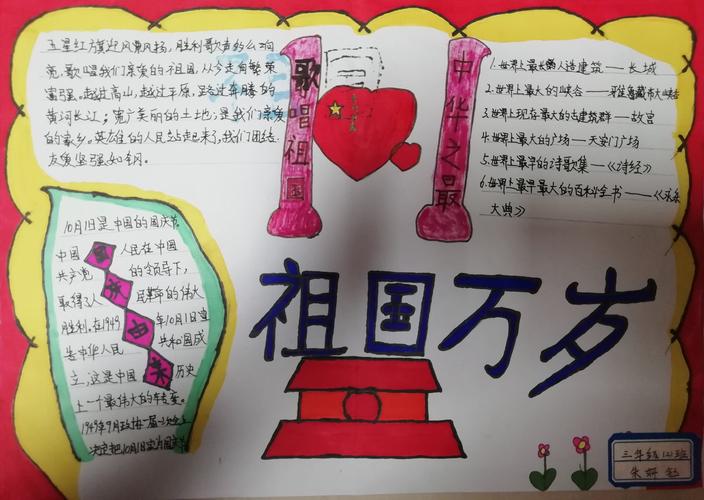 五星红旗迎风飘扬，胜利歌声多么响
亮，歌唱我们亲爱的祖国，从今走向繁荣
富强。越过高山，越过平原，跨过奔腾的
黄河长江；宽广美丽的土地，是我们亲爱
的家乡。英雄的人民站起来了，我们团结
友爱坚强如钢。
歌唱祖国
中华之最
1.世界上最长的人造建筑——长城
2.世界上最大的峡谷——雅鲁藏布大峡谷
3.世界上现存最大的古建筑群——故宫
4.世界上最大的广场——天安门广场
5.世界上最早的诗歌集——《诗经》
6.世界上最早最大的百科全书——《永乐
大典》
10月1日是中国的国庆节。
中国人民在中国
共产党的领导下，
取得了人民革命的伟大
胜利，在1949年10月1日宣
告中华人民共和国成
立，这是中国历史
上一个最伟大的转变。
1949年9月政协一届一次会上
决定把10月1日定为国庆节。
国庆由来
祖国万岁
三年级(2)班
朱妍